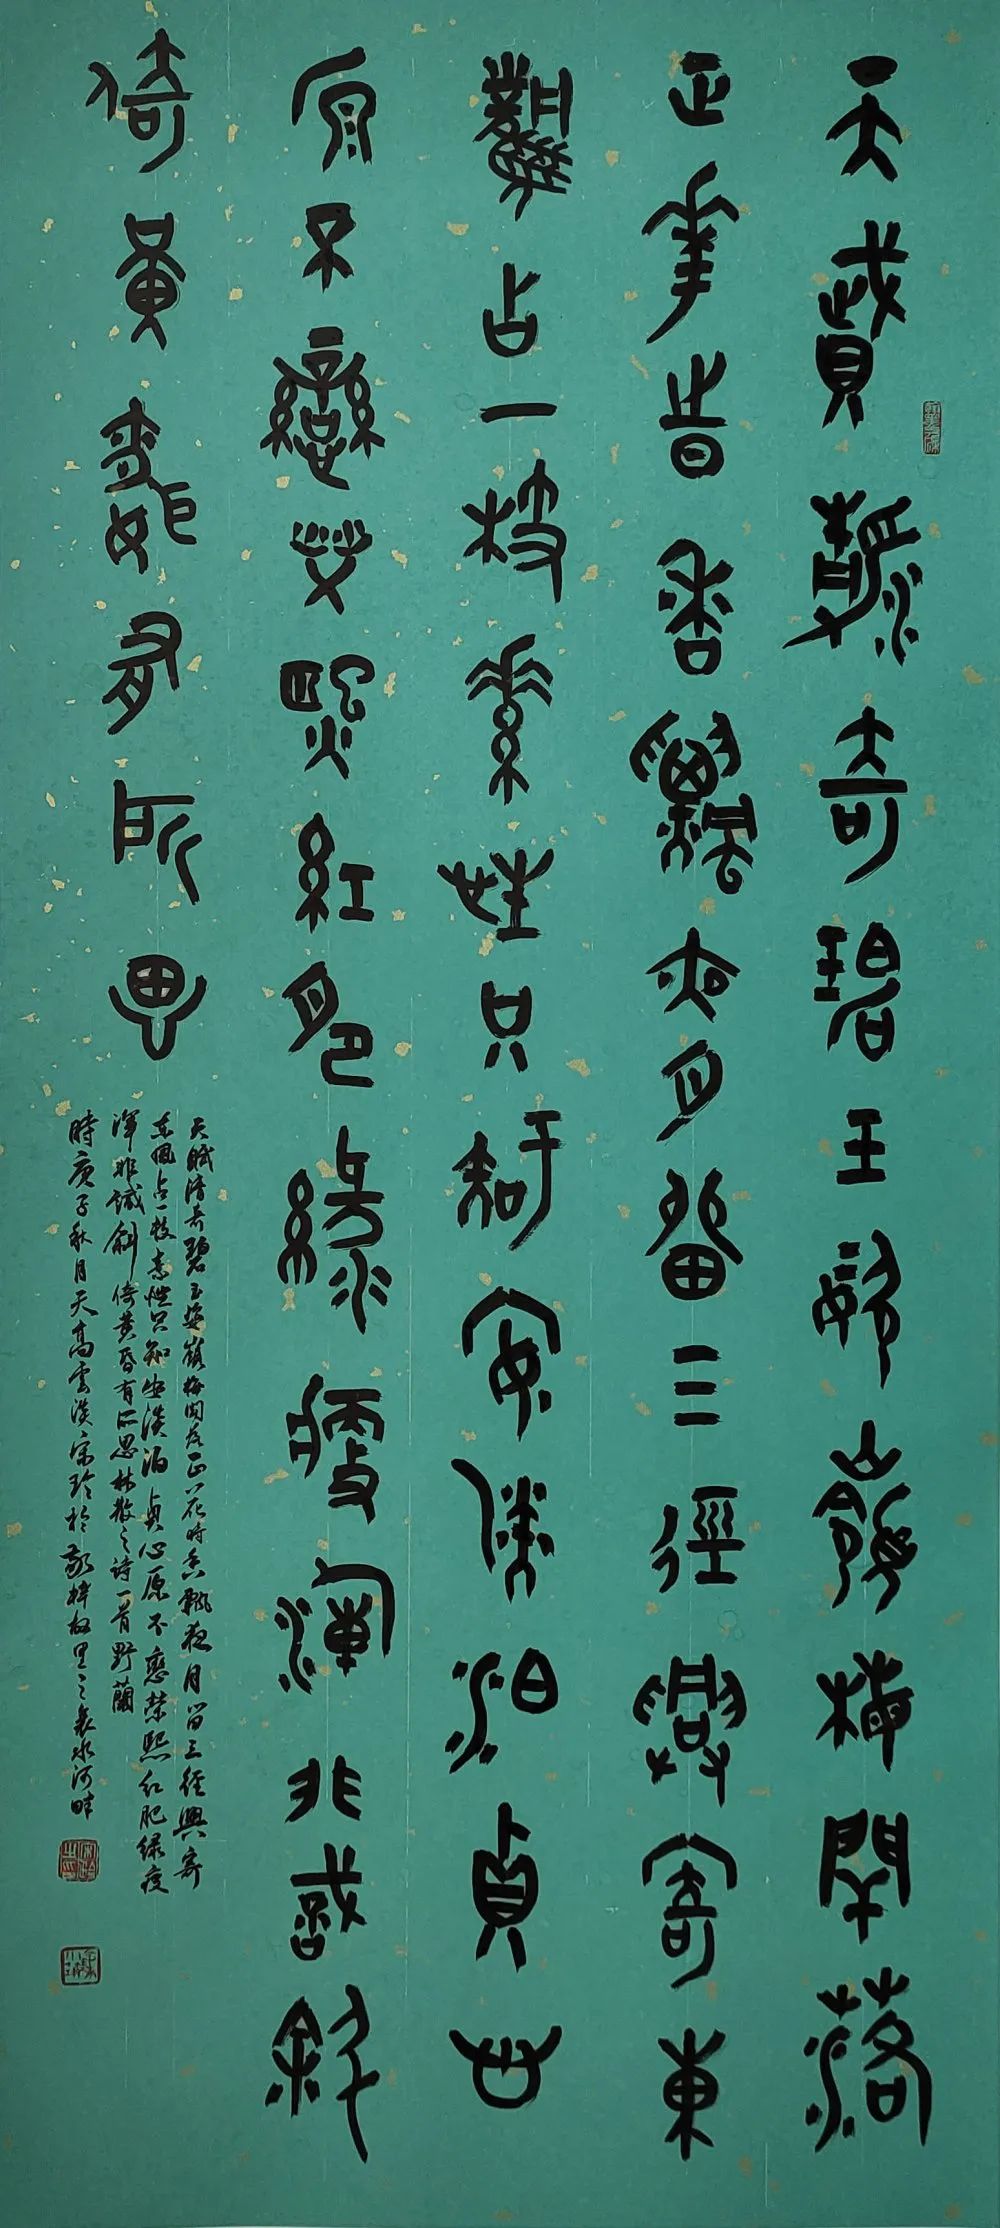 天賦清奇碧玉姿嶺梅開落
正華時香飄夜月留三徑興寄東
風占一枝素性只知安淡泊貞心
原不戀榮熙紅肥綠瘦渾非識斜
倚黃昏有所思
天賦清奇碧玉姿嶺梅開落正花時香飄夜月留三徑興寄
東風占一枝素性只知安淡泊貞心原不戀榮熙紅肥綠瘦
渾非識斜倚黃昏有所思林散之詩一首野蘭
時庚子秋月天高雲淡宋玲於敬梓故里之襄水河畔